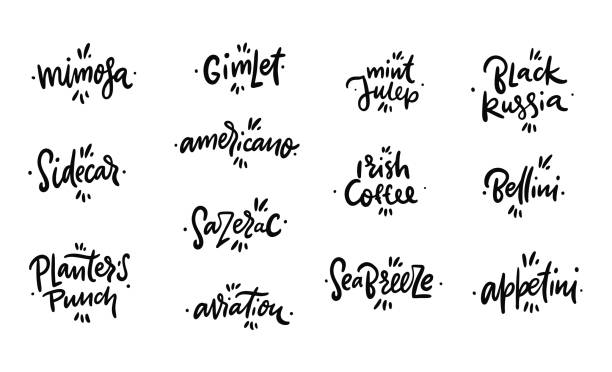 mimosa
Gimlet
mint
Julep
Black
Russia
Sidecar
americano
Irish
Coffee
Bellini
Sazerac
Planter's
Punch
aviation
SeaBreeze
appetini